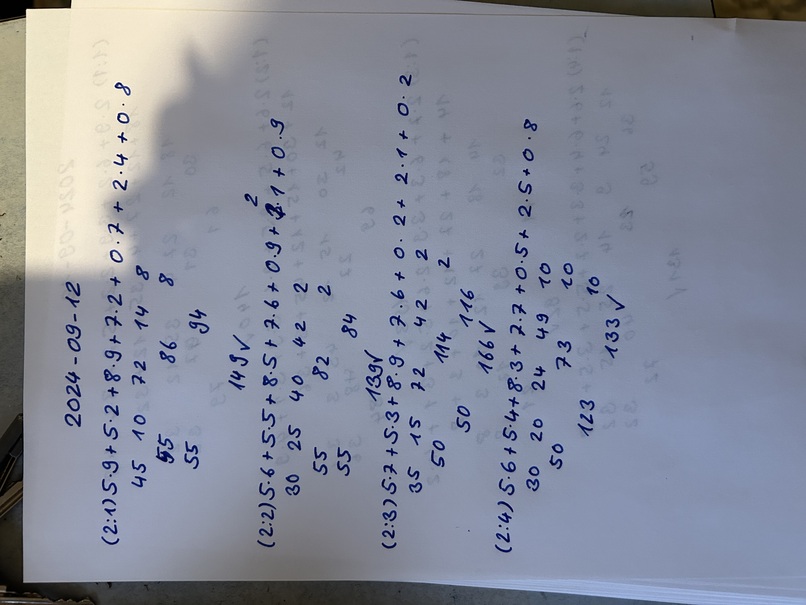 2024-09-12
(2:1) 5·9+5·2+8·9+7·2+0·7+2·4+0·8
45 10 72 14 8
55 86 8
55 94
149√
(2:2) 5·6+5·5+8·5+7·6+0·9+2·1+0·9
30 25 40 42 2
55 82 2
55 84
139√
(2:3) 5·7+5·3+8·9+7·6+0·2+2·1+0·2
35 15 72 42 2
50 114 2
50 116
166√
(2:4) 5·6+5·4+8·3+7·7+0·5+2·5+0·8
30 20 24 49 10
50 73 10
123 10
133√